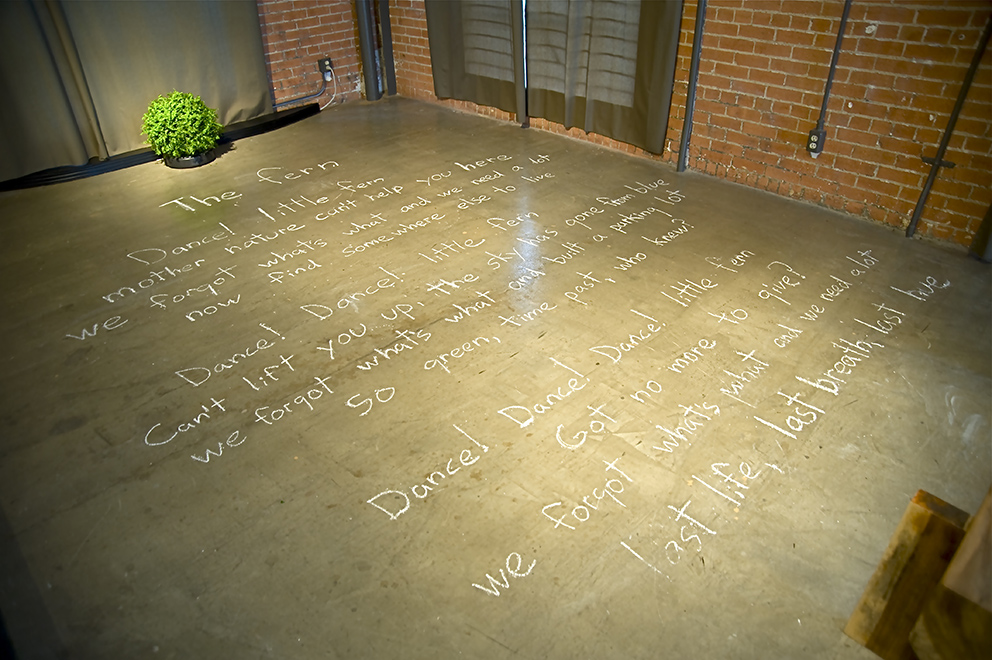 The fern
Dance! little fern
mother nature can't help you here
we forgot what's what and we need a lot
now find somewhere else to live
Dance! Dance! little fern
Can't lift you up, the sky has gone from blue
we forgot what's what and built a parking lot
so green, time past, who knew?
Dance! Dance! Dance! little fern
Got no more to give?
we forgot what's what and we need a lot
last life, last breath, last